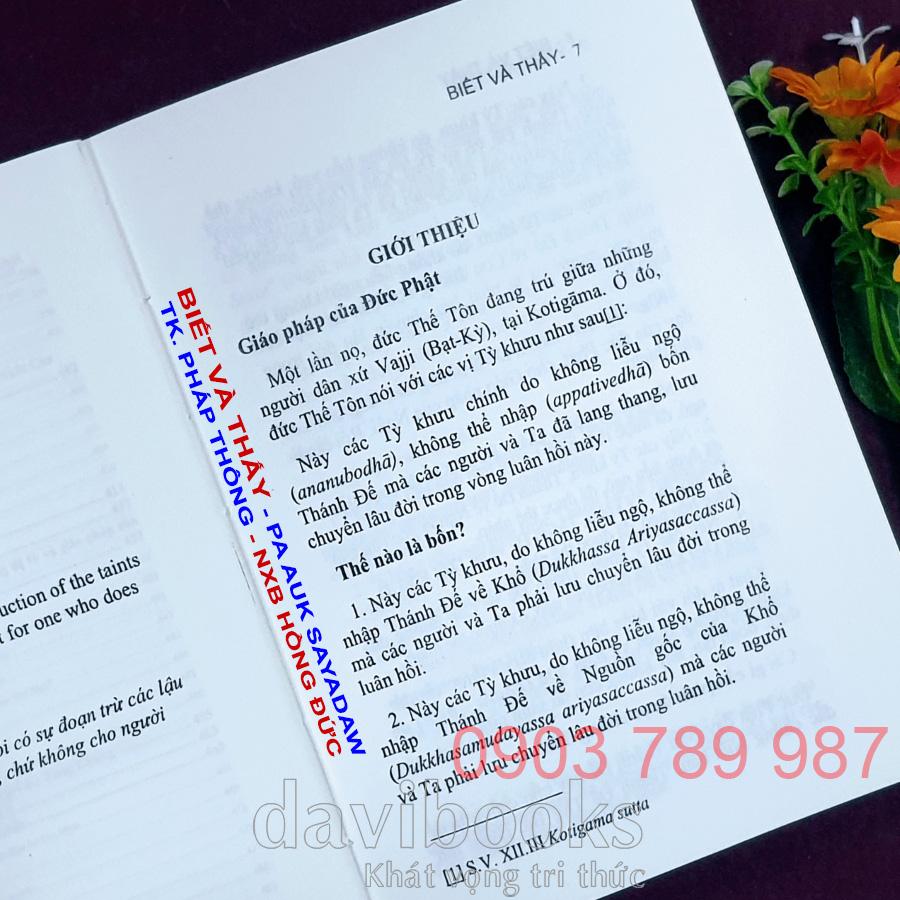 BIẾT VÀ THẤY- 7
GIỚI THIỆU
Giáo pháp của Đức Phật
Một lần nọ, đức Thế Tôn đang trú giữa những
người dân xứ Vajji (Bạt-Kỳ), tại Kotigāma. Ở đó,
đức Thế Tôn nói với các vị Tỳ khưu như sau[1]:
Này các Tỳ khưu chính do không liễu ngộ
(ananubodhā), không thể nhập (appativedhā) bốn
Thánh Đế mà các người và Ta đã lang thang, lưu
chuyển lâu đời trong vòng luân hồi này.
Thế nào là bốn?
1. Này các Tỳ khưu, do không liễu ngộ, không thể
nhập Thánh Đế về Khổ (Dukkhassa Ariyasaccassa)
mà các người và Ta phải lưu chuyển lâu đời trong
luân hồi.
2. Này các Tỳ khưu, do không liễu ngộ, không thể
nhập Thánh Đế về Nguồn gốc của Khổ
(Dukkhasamudayassa ariyasaccassa) mà các người
và Ta phải lưu chuyển lâu đời trong luân hồi.
[1] S.V. XII.III Kotigama sutta
uction of the taints
t for one who does
i có sự đoạn trừ các lậu
, chứ không cho người
BIẾT VÀ THẤY - PA AUK SAYADAW
TK. PHÁP THÔNG - NXB HỒNG ĐỨC
0903 789 987
davibooks
Khát vọng tri thức